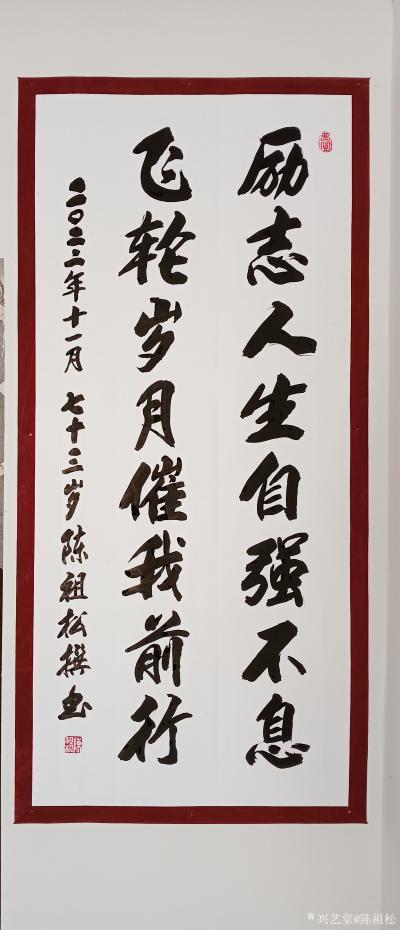 励志人生自强不息
飞轮岁月催我前行
二〇二二年十一月 七十三岁陈祖松撰书
兴艺堂@陈祖松